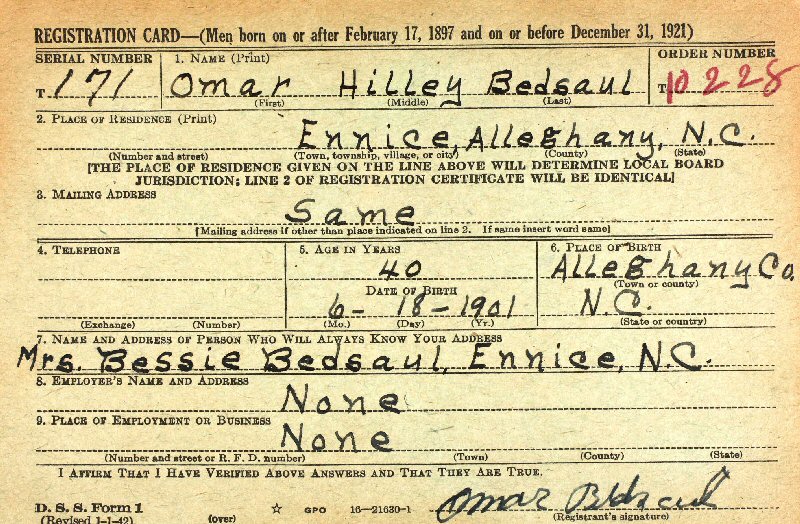 REGISTRATION CARD—(Men born on or after February 17, 1897 and on or before December 31, 1921)
SERIAL NUMBER 1. NAME (Print) ORDER NUMBER
T 171 Omar Hilley Bedsaul T 10228
(First) (Middle) (Last)
2. PLACE OF RESIDENCE (Print)
Ennice, Alleghany, N.C.
(Number and street) (Town, township, village, or city) (County) (State)
[THE PLACE OF RESIDENCE GIVEN ON THE LINE ABOVE WILL DETERMINE LOCAL BOARD
JURISDICTION; LINE 2 OF REGISTRATION CERTIFICATE WILL BE IDENTICAL]
3. MAILING ADDRESS
Same
[Mailing address if other than place indicated on line 2. If same insert word same]
4. TELEPHONE 5. AGE IN YEARS 6. PLACE OF BIRTH
40 Alleghany Co.
DATE OF BIRTH (Town or county)
6- 18-1901 N.C.
(Exchange) (Number) (Mo.) (Day) (Yr.) (State or country)
7. NAME AND ADDRESS OF PERSON WHO WILL ALWAYS KNOW YOUR ADDRESS
Mrs. Bessie Bedsaul, Ennice, N.C.
8. EMPLOYER'S NAME AND ADDRESS
None
9. PLACE OF EMPLOYMENT OR BUSINESS
None
(Number and street or R. F. D. number) (Town) (County) (State)
I AFFIRM THAT I HAVE VERIFIED ABOVE ANSWERS AND THAT THEY ARE TRUE.
D. S. S. Form 1 GPO 16—21630-1 Omar Bedsaul
(Revised 1-1-42) (over) (Registrant's signature)